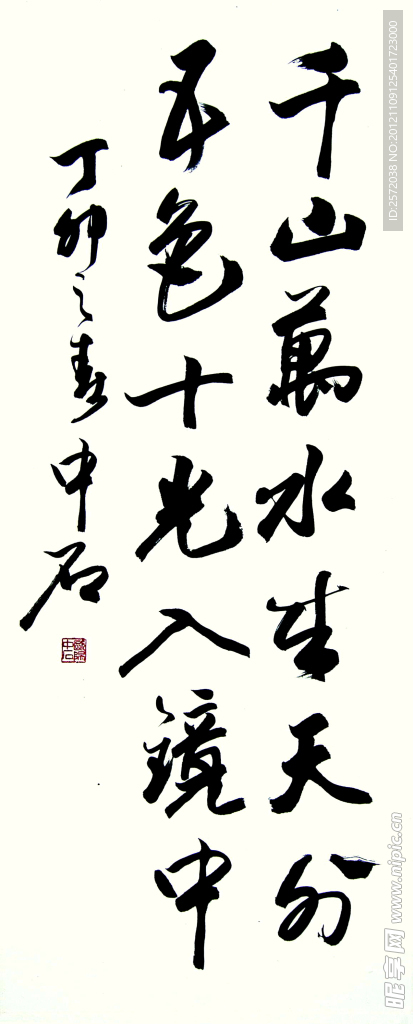 千山萬水生天外
五色十光入鏡中
丁卯之春中石
ID:2572038 NO:20121109125401723000
昵享网 www.nipic.cn